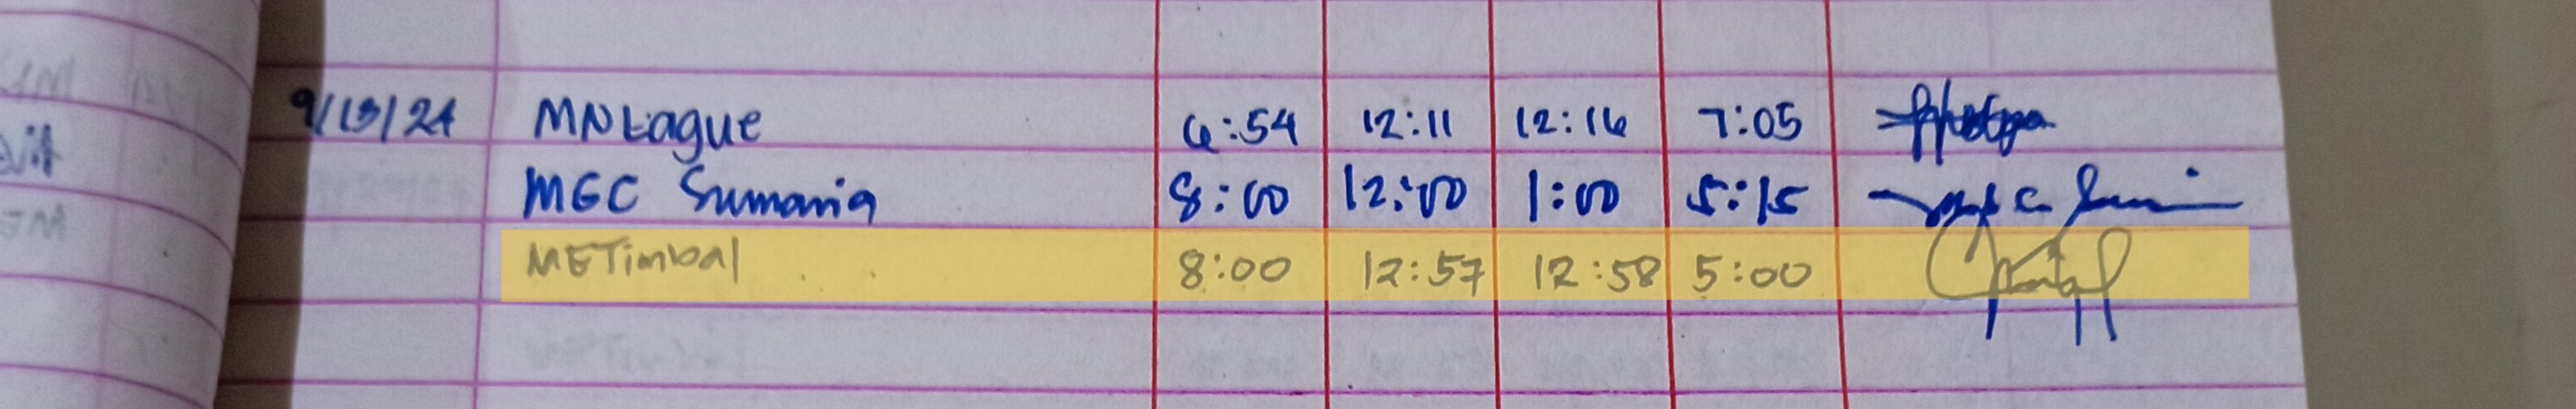 9/13/24 MNLague 6:54 12:11 12:16 7:05
MGC Sumania 8:00 12:00 1:00 5:15
METimbal 8:00 12:57 12:58 5:00